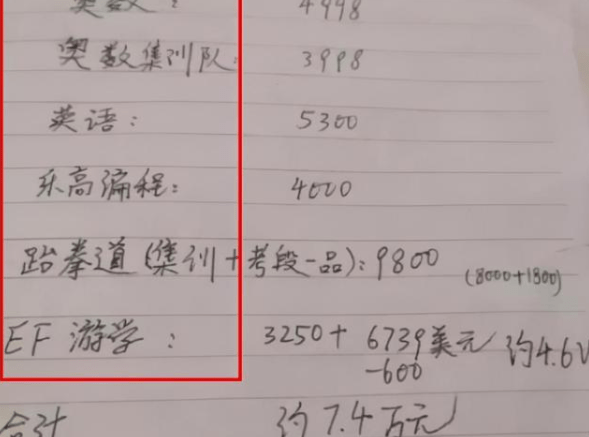 奥数: 4998
奥数集训队: 3998
英语: 5300
乐高编程: 4000
跆拳道(集训+考段一品): 9800 (8000+1800)
EF 游学: 3250+ 6739美元 约4.6
-600
合计 约7.4万元